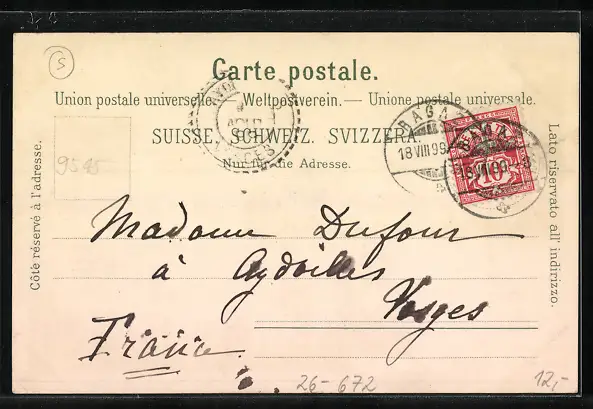 S
Carte postale.
Union postale universelle. — Weltpostverein. — Unione postale universale.
SUISSE. SCHWEIZ. SVIZZERA.
Nur für die Adresse.
Côté réservé à l'adresse.
Lato riservato all' indirizzo.
9545
RAGAZ
18 VIII 99
RAGAZ
18 VIII 99-8
10
Madame Dufour
à Aydoilles
Vosges
France
26-672
12,-